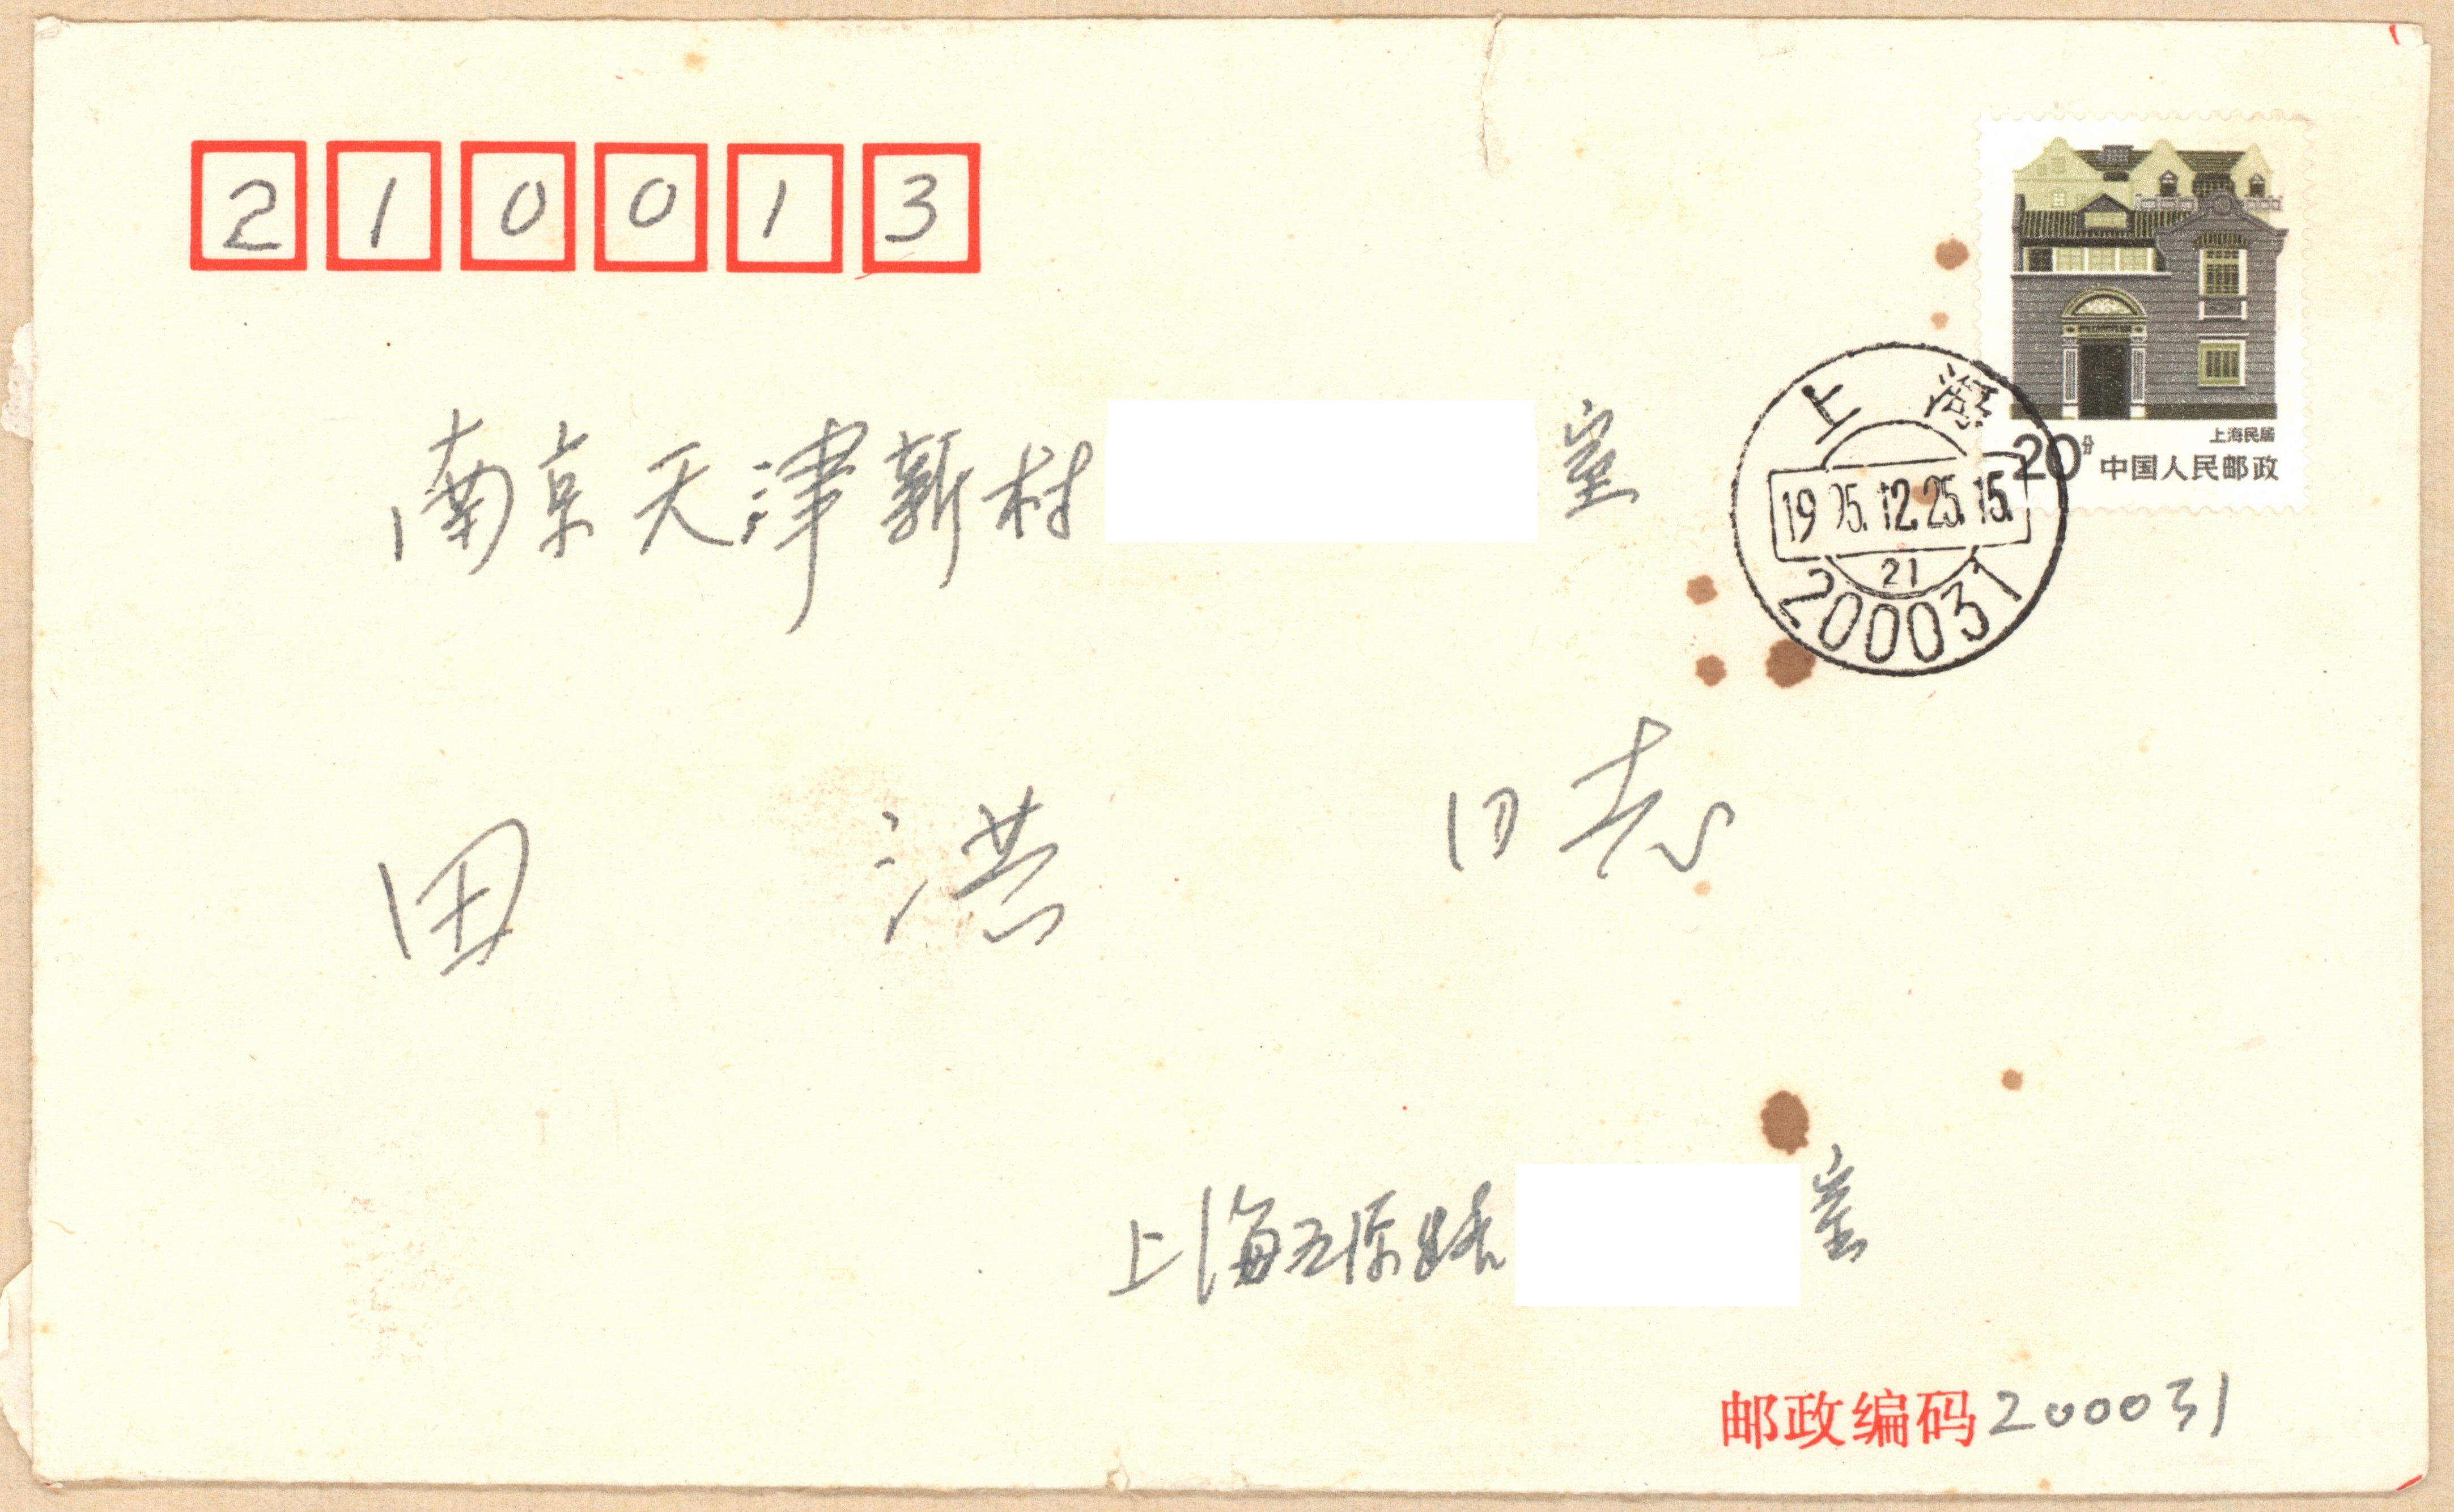 210013
上海民居
20分 中国人民邮政
上海
19 95.12.25.15.
21
200031
南京天津新村 室
田洪 同志
上海五原路 室
邮政编码 200031